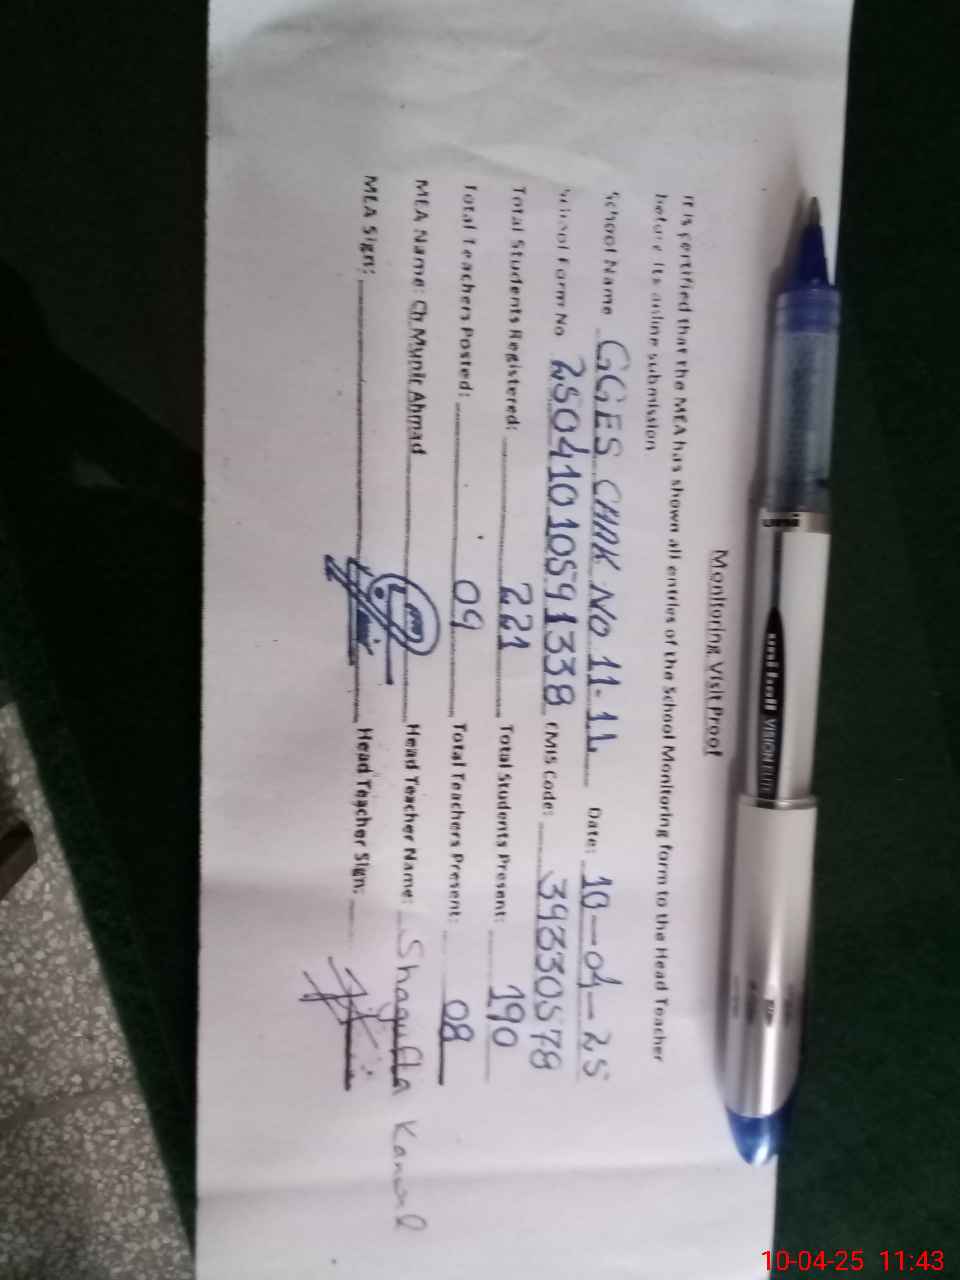 Monitoring Visit Proof
It is certified that the MEA has shown all entries of the School Monitoring form to the Head Teacher
before its online submission
School Name GGES CHAK NO 11-11 Date: 10-04-25
School Form No 2504101059 1338 EMIS Code: 39330578
Total Students Registered: 221 Total Students Present: 190
Total Teachers Posted: 09 Total Teachers Present: 08
MEA Name: Ch Munir Ahmad Head Teacher Name: Shagufta Kanwal
MEA Sign: Head Teacher Sign:
uni
uni-ball VISION ELITE
10-04-25 11:43